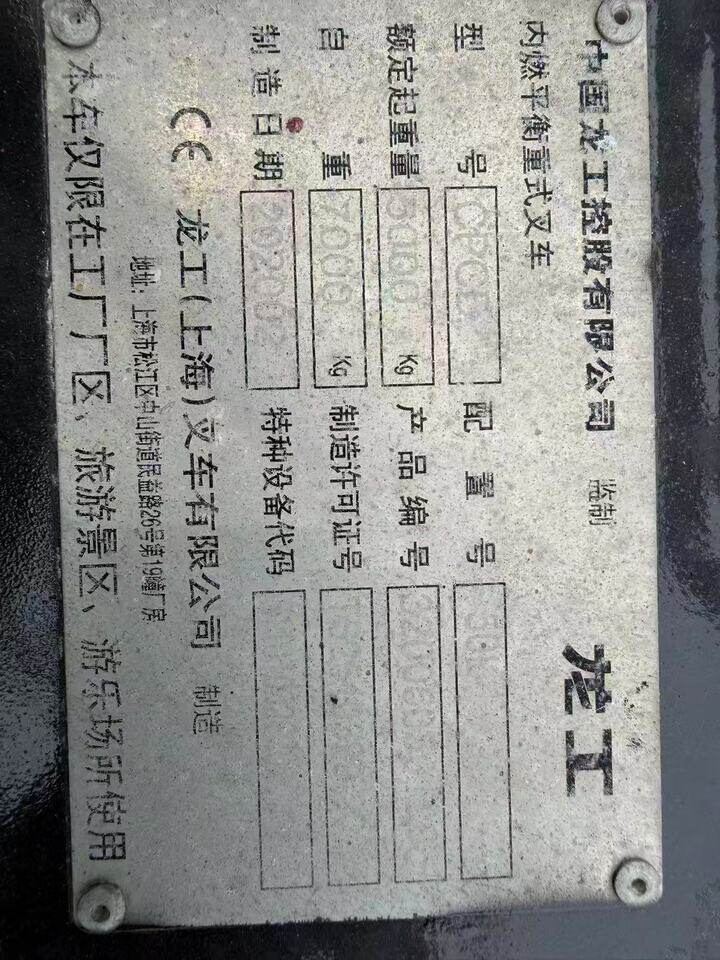 中国龙工控股有限公司 监制 龙工
内燃平衡重式叉车
型 号 配置号
额定起重量 5000 Kg 产品编号
自 重 Kg 制造许可证号
制造日期 202002 特种设备代码
CE 龙工(上海)叉车有限公司 制造
地址：上海市松江区中山街道民益路26号第19幢厂房
本车仅限在工厂厂区、旅游景区、游乐场所使用